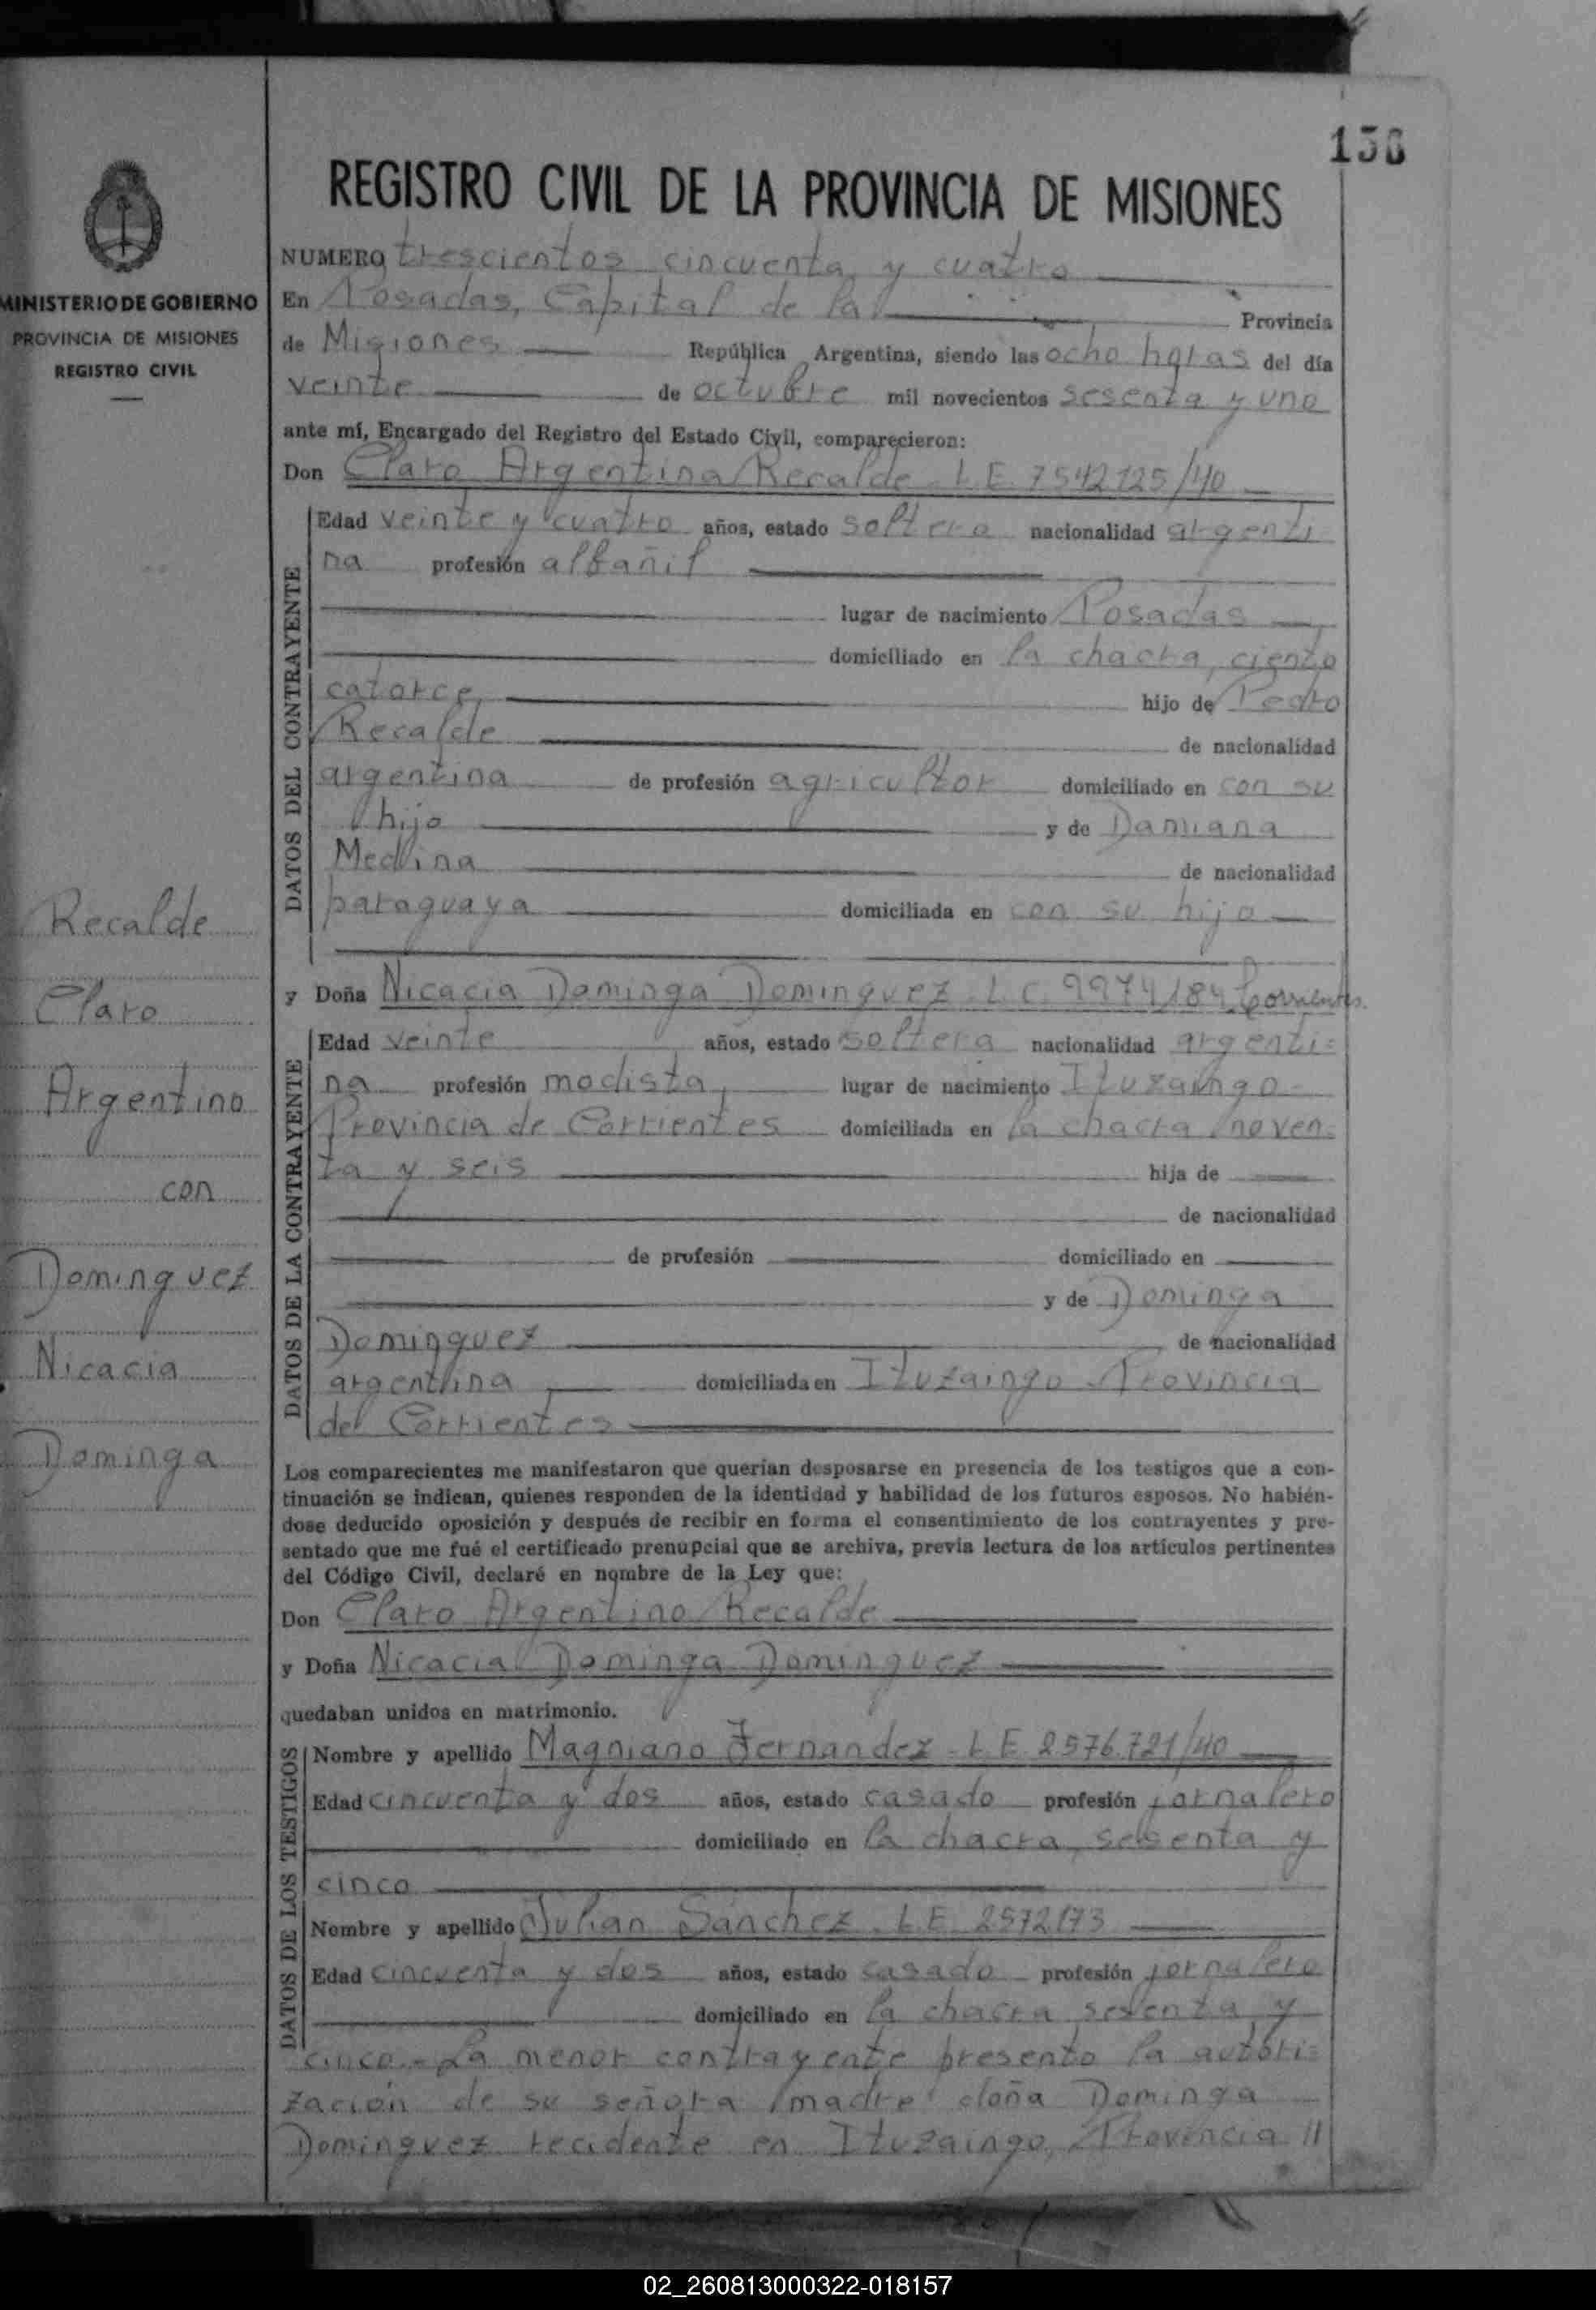 138
REGISTRO CIVIL DE LA PROVINCIA DE MISIONES
MINISTERIO DE GOBIERNO
PROVINCIA DE MISIONES
REGISTRO CIVIL
Recalde
Claro
Argentino
con
Dominguez
Nicacia
Dominga
NUMERO trescientos cincuenta y cuatro
En Posadas, Capital de la Provincia
de Misiones República Argentina, siendo las ocho horas del día
veinte de octubre mil novecientos sesenta y uno
ante mí, Encargado del Registro del Estado Civil, comparecieron:
Don Claro Argentino Recalde L E 7542125/40
DATOS DEL CONTRAYENTE
Edad veinte y cuatro años, estado soltero nacionalidad argenti
na profesión albañil
lugar de nacimiento Posadas
domiciliado en la chacra ciento
catorce, hijo de Pedro
Recalde de nacionalidad
argentina de profesión agricultor domiciliado en con su
hijo y de Damiana
Medina de nacionalidad
paraguaya domiciliada en con su hijo
y Doña Nicacia Dominga Dominguez L. C. 9974184 Corrientes.
DATOS DE LA CONTRAYENTE
Edad veinte años, estado soltera nacionalidad argenti=
na profesión modista, lugar de nacimiento Ituzaingo
Provincia de Corrientes domiciliada en la chacra noven=
ta y seis hija de
de nacionalidad
de profesión domiciliado en
y de Dominga
Dominguez de nacionalidad
argentina domiciliada en Ituzaingo Provincia
de Corrientes
Los comparecientes me manifestaron que querían desposarse en presencia de los testigos que a con-
tinuación se indican, quienes responden de la identidad y habilidad de los futuros esposos. No habién-
dose deducido oposición y después de recibir en forma el consentimiento de los contrayentes y pre-
sentado que me fué el certificado prenupcial que se archiva, previa lectura de los artículos pertinentes
del Código Civil, declaré en nombre de la Ley que:
Don Claro Argentino Recalde
y Doña Nicacia Dominga Dominguez
quedaban unidos en matrimonio.
DATOS DE LOS TESTIGOS
Nombre y apellido Magniano Fernandez - L E 2576.721/40
Edad cincuenta y dos años, estado casado profesión jornalero
domiciliado en la chacra sesenta y
cinco
Nombre y apellido Julian Sánchez. L E 2572173
Edad cincuenta y dos años, estado casado profesión jornalero
domiciliado en la chacra sesenta y
cinco.- La menor contrayente presento la autori=
zación de su señora madre doña Dominga
Dominguez recidente en Ituzaingo, Provincia //
02_260813000322-018157